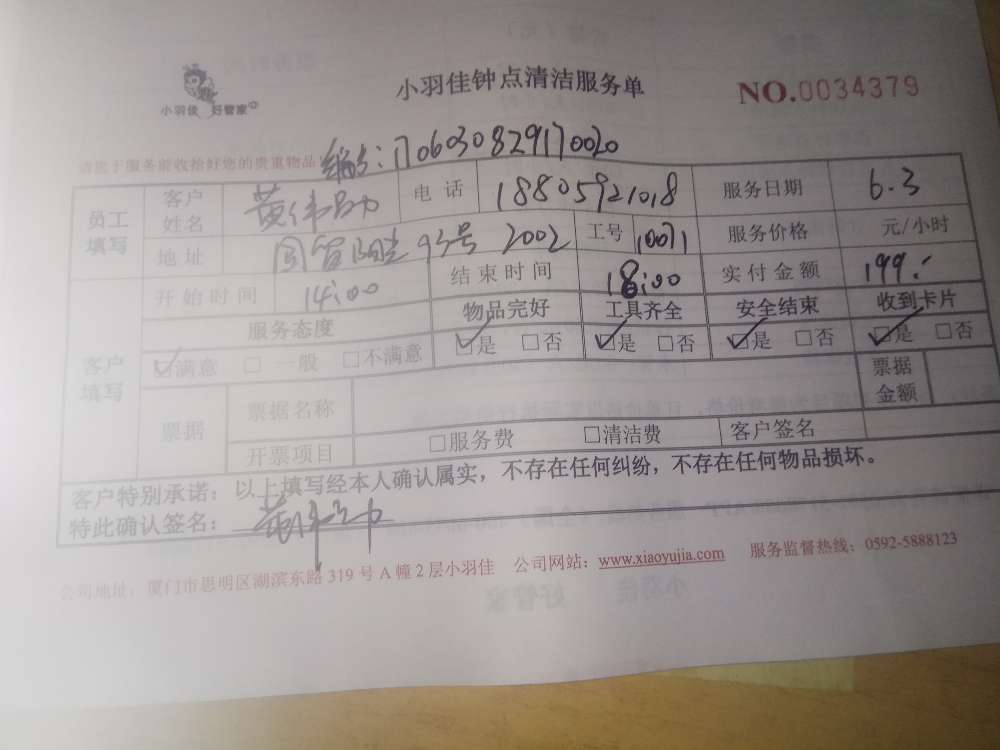 小羽佳钟点清洁服务单
NO.0034379
小羽佳 好管家
请您于服务前收拾好您的贵重物品!
编号:1706030829170020
员工填写 客户姓名 黄伟 电话 18805921018 服务日期 6.3
地址 国贸阳光93号 2002 工号 10071 服务价格 元/小时
客户填写 开始时间 14:00 结束时间 18:00 实付金额 199.-
服务态度 物品完好 工具齐全 安全结束 收到卡片
☑满意 □一般 □不满意 ☑是 □否 ☑是 □否 ☑是 □否 ☑是 □否
票据 票据名称 票据金额
开票项目 □服务费 □清洁费 客户签名
客户特别承诺:以上填写经本人确认属实,不存在任何纠纷,不存在任何物品损坏。
特此确认签名:
公司地址:厦门市思明区湖滨东路 319 号 A 幢 2 层小羽佳 公司网站:www.xiaoyujia.com 服务监督热线:0592-5888123